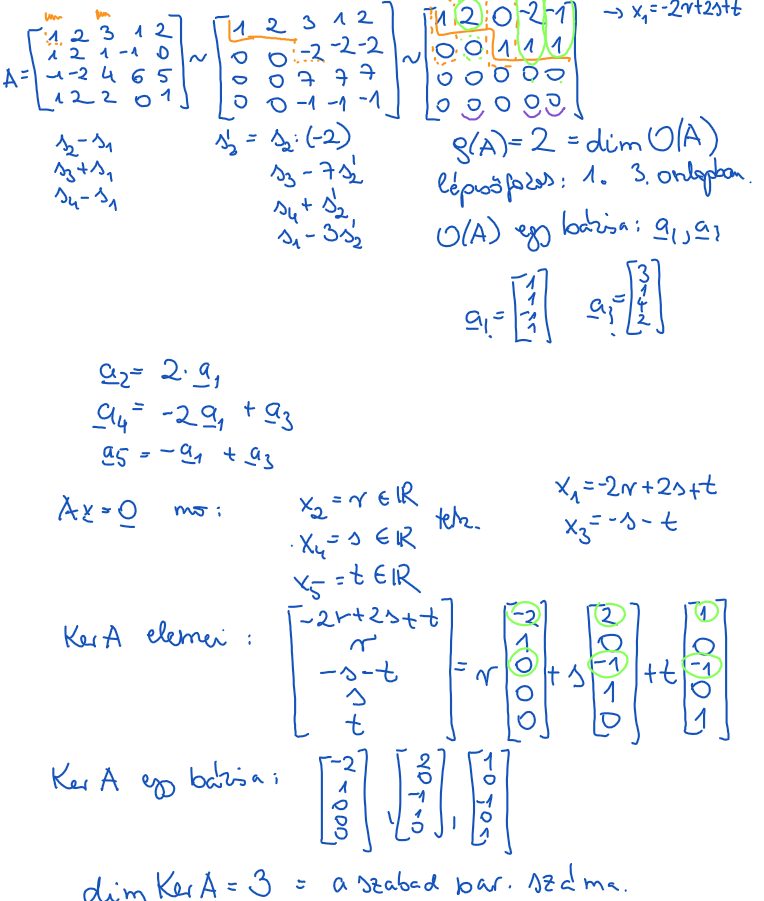 A = [1 2 3 1 2; 1 2 1 -1 0; -1 -2 4 6 5; 1 2 2 0 1] ~ [1 2 3 1 2; 0 0 -2 -2 -2; 0 0 7 7 7; 0 0 -1 -1 -1] ~ [1 2 0 -2 -1; 0 0 1 1 1; 0 0 0 0 0; 0 0 0 0 0] → x₁=-2r+2s+t
s₂-s₁
s₃+s₁
s₄-s₁
s₂' = s₂:(-2)
s₃-7s₂'
s₄+s₂'
s₁-3s₂'
ρ(A)=2 = dim O(A)
lépcsőfokos: 1. 3. oszlopban.
O(A) egy bázisa: a₁, a₃
a₁=[1; 1; -1; 1] a₃=[3; 1; 4; 2]
a₂= 2·a₁
a₄= -2a₁ + a₃
a₅= -a₁ + a₃
Ax=0 mo:
x₂=r∈ℝ
x₄=s∈ℝ
x₅=t∈ℝ
tetsz.
x₁=-2r+2s+t
x₃=-s-t
Ker A elemei: [-2r+2s+t; r; -s-t; s; t] = r[-2; 1; 0; 0; 0] + s[2; 0; -1; 1; 0] + t[1; 0; -1; 0; 1]
Ker A egy bázisa: [-2; 1; 0; 0; 0], [2; 0; -1; 1; 0], [1; 0; -1; 0; 1]
dim Ker A = 3 = a szabad par. száma.